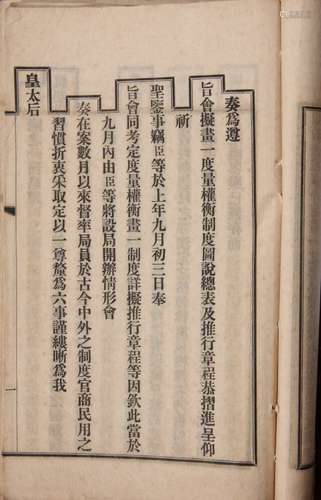 奏爲遵
旨會擬畫一度量權衡制度圖說總表及推行章程恭摺進呈仰
祈
聖鑒事竊臣等於上年九月初三日奉
旨會同考定度量權衡畫一制度詳擬推行章程等因欽此當於
九月內由臣等將設局開辦情形會
奏在案數月以來督率局員於古今中外之制度官商民用之
習慣折衷采取定以一尊釐爲六事謹縷晰爲我
皇太后
一